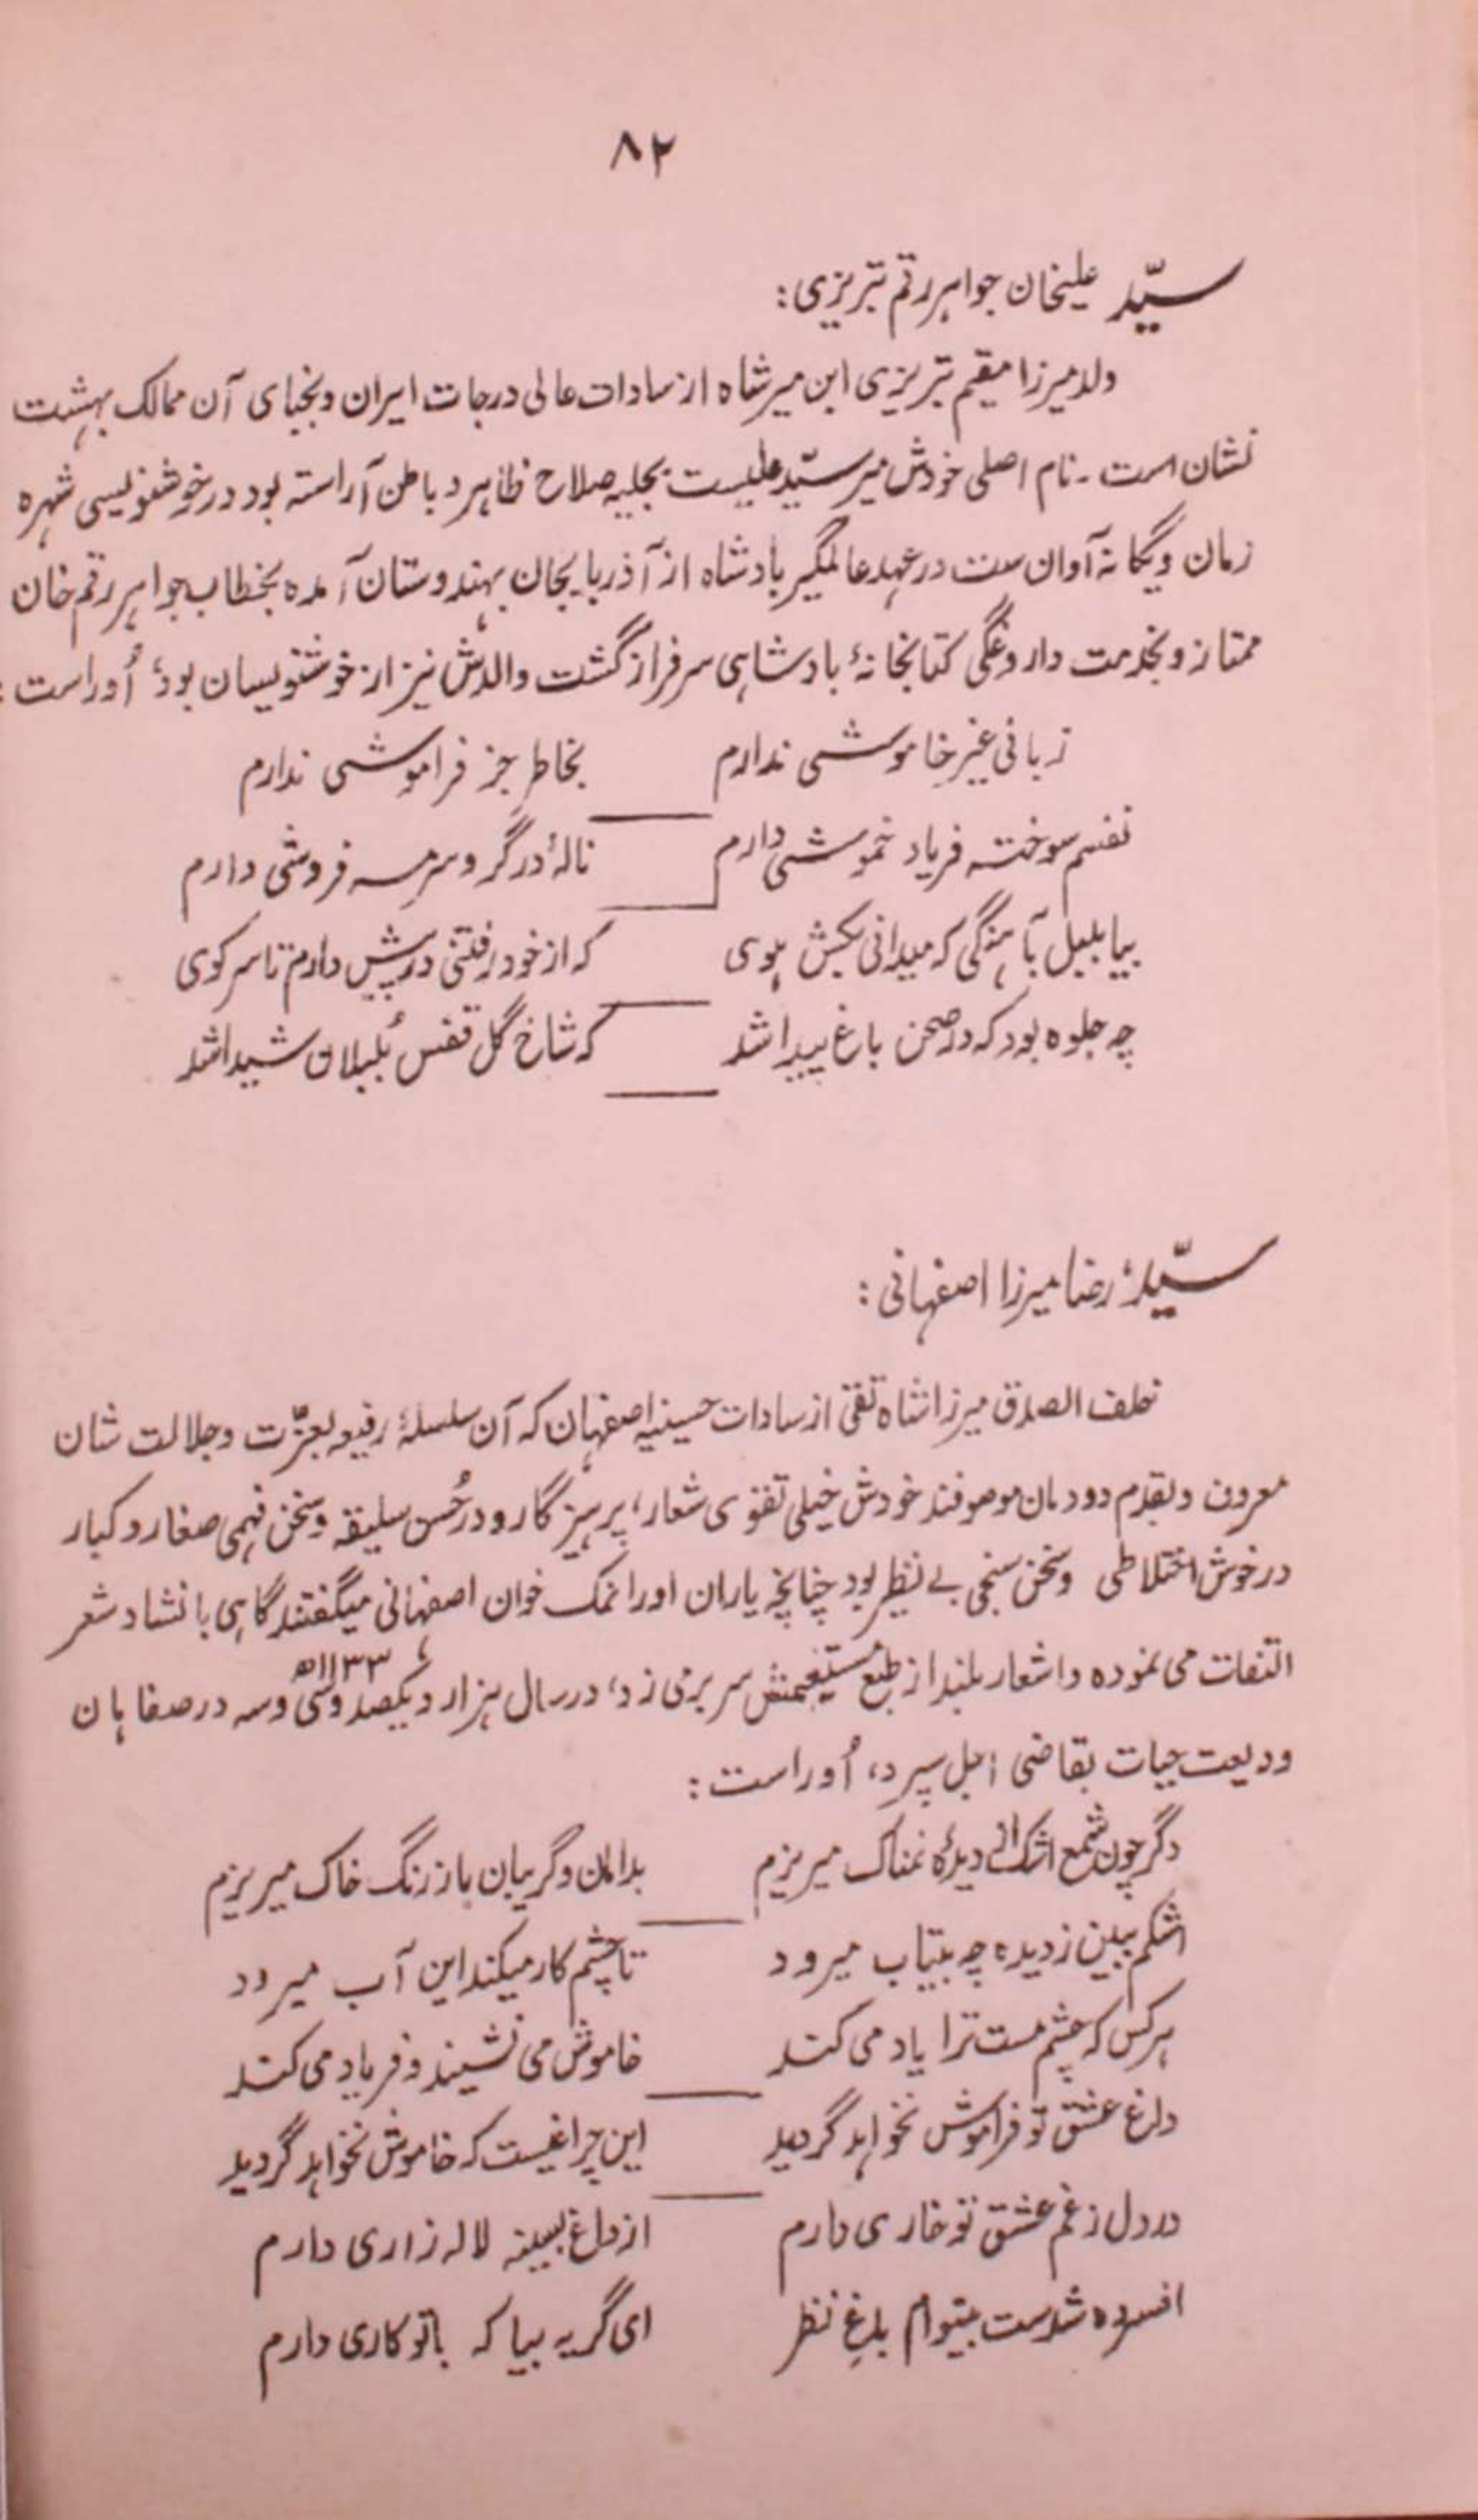 ۸۲
سیّد علیخان جواہر رقم تبریزی:
ولد میرزا مقیم تبریزی ابن میر شاہ از سادات عالی درجات ایران ونجبای آن ممالک بہشت
نشان است۔ نام اصلی خودش میر سیّد علیست بحلیہ صلاح ظاہر و باطن آراستہ بود در خوشنویسی شہرہ
زمان ویگانہ آوان ست در عہد عالمگیر بادشاہ از آذربایجان بہندوستان آمدہ بخطاب جواہر رقم خان
ممتاز و بخدمت داروغگی کتابخانۂ بادشاہی سرفراز گشت والدش نیز از خوشنویسان بود، اُوراست:
زبانی غیر خاموشی ندارم بخاطر جز فراموشی ندارم
نفسم سوختہ فریاد خموشی دارم نالۂ در گرو سرمہ فروشی دارم
بیا بلبل بآہنگی کہ میدانی بکش ہوی کہ از خود رفتنی در پیش دارم تا سر کوی
چہ جلوہ بود کہ در صحن باغ پیدا شد کہ شاخ گل قفس بُلبلان شیدا شد
سیّد رضا میرزا اصفہانی:
خلف الصدق میرزا شاہ تقی از سادات حسینیہ اصفہان کہ آن سلسلۂ رفیعہ بعزّت وجلالت شان
معروف و بقدم دودمان موصوفند خودش خیلی تقوی شعار، پرہیزگار و در حُسن سلیقہ وسخن فہمی صغار و کبار
در خوش اختلاطی وسخن سنجی بے نظیر بود چنانچہ یاران اورا نمک خوان اصفہانی میگفتند گاہی بانشاد شعر
التفات می نمودہ و اشعار بلند از طبع مستقیمش سر بر می زد، در سال ہزار و یکصد وسی وسہ ۱۱۳۳ھ در صفاہان
ودیعت حیات بقاضی اجل سپرد، اُوراست:
دگر چون شمع اشک از دیدۂ نمناک میریزم بدامان وگریبان باز رنگ خاک میریزم
اشکم ببین ز دیدہ چہ بیتاب میرود تا چشم کار میکند این آب میرود
ہر کس کہ چشم مست ترا یاد می کند خاموش می نشیند و فریاد می کند
داغ عشق تو فراموش نخواہد گردید این چراغیست کہ خاموش نخواہد گردید
در دل ز غم عشق تو خاری دارم از داغ بسینہ لالہ زاری دارم
افسردہ شدست بیتوام باغِ نظر ای گریہ بیا کہ باتو کاری دارم